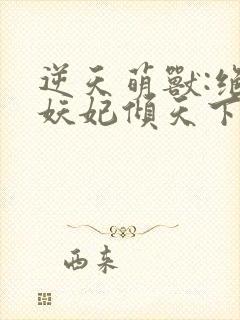 逆天萌獸:絕
妖妃傾天下
西來